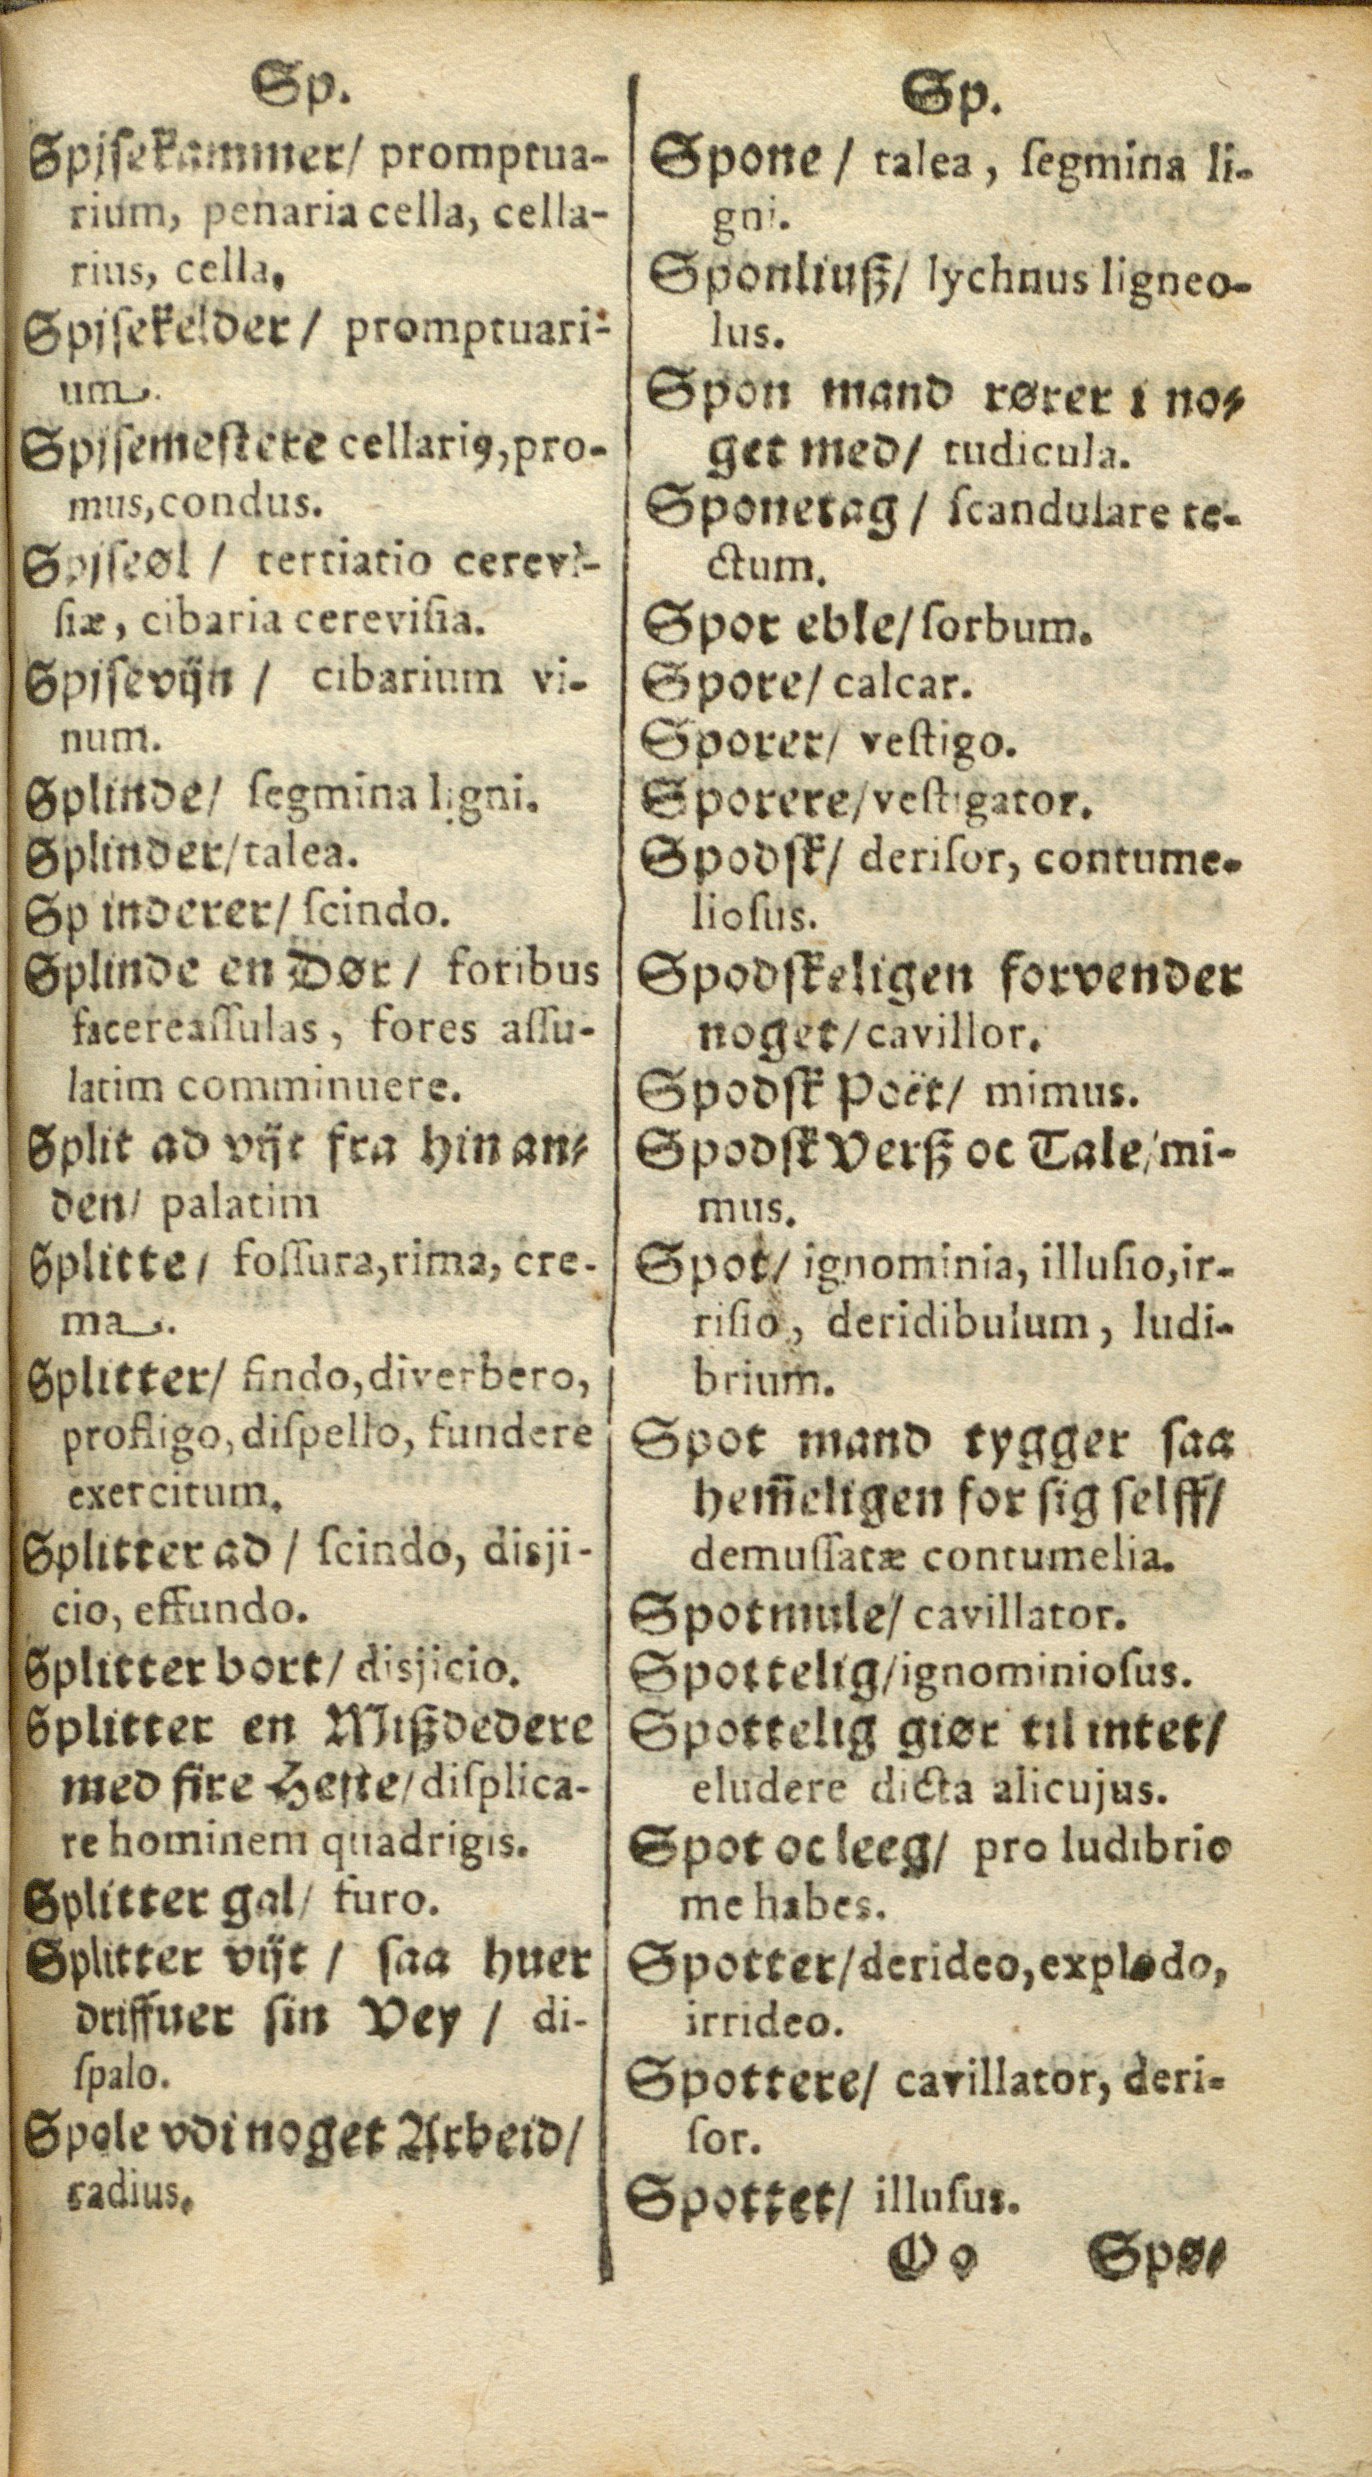 Sp.
Spjſekammer/ promptua-
rium, penaria cella, cella-
rius, cella,
Spjſekelder/ promptuari-
um.
Spjſemeſtere cellariꝰ, pro-
mus, condus.
Spjſeøl / tertiatio cerevi-
ſiæ, cibaria cereviſia.
Spjſevijn / cibarium vi-
num.
Splinde/ ſegmina ligni.
Splinder/ talea.
Sp inderer/ ſcindo.
Splinde en Dør / foribus
facereaſſulas, fores aſſu-
latim comminuere.
Split ad vijt fra hin an-
den/ palatim
Splitte/ foſſura, rima, cre-
ma.
Splitter/ findo, diverbero,
profligo, diſpello, fundere
exercitum.
Splitter ad / ſcindo, disji-
cio, effundo.
Splitter bort/ disjicio.
Splitter en Mißdedere
med fire Heſte/ diſplica-
re hominem quadrigis.
Splitter gal/ furo.
Splitter vijt / ſaa huer
driffuer ſin Vey / di-
ſpalo.
Spole vdi noget Arbeid/
radius.
Sp.
Spone / talea, ſegmina li-
gni.
Sponliuß/ lychnus ligneo-
lus.
Spon mand rører i no-
get med/ tudicula.
Sponetag / ſcandulare te-
ctum.
Spor eble/ ſorbum.
Spore/ calcar.
Sporer/ veſtigo.
Sporere/ veſtigator.
Spodſk/ deriſor, contume-
lioſus.
Spodſkeligen forvender
noget/ cavillor.
Spodſk Poët/ mimus.
Spodſk Verß oc Tale/ mi-
mus.
Spot/ ignominia, illuſio, ir-
riſio, deridibulum, ludi-
brium.
Spot mand tygger ſaa
hem̄eligen for ſig ſelff/
demuſſatæ contumelia.
Spotmule/ cavillator.
Spottelig/ ignominioſus.
Spottelig giør til intet/
eludere dicta alicujus.
Spot oc leeg/ pro ludibrio
me habes.
Spotter/ derideo, explodo,
irrideo.
Spottere/ cavillator, deri-
ſor.
Spottet/ illuſus.
Oo Spø-